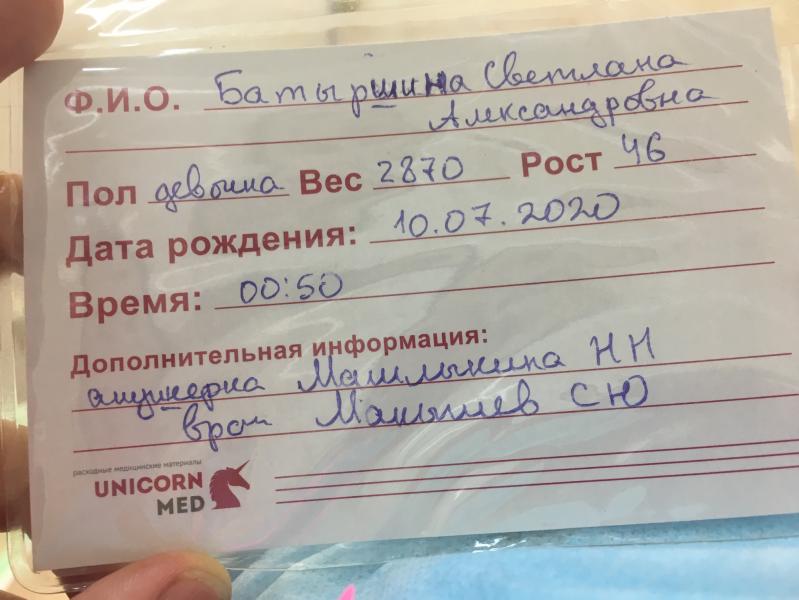 Ф.И.О. Батыршина Светлана
Александровна
Пол девочка Вес 2870 Рост 46
Дата рождения: 10.07.2020
Время: 00:50
Дополнительная информация:
акушерка Машлыкина Н Н
врач С Ю
расходные медицинские материалы
UNICORN
MED